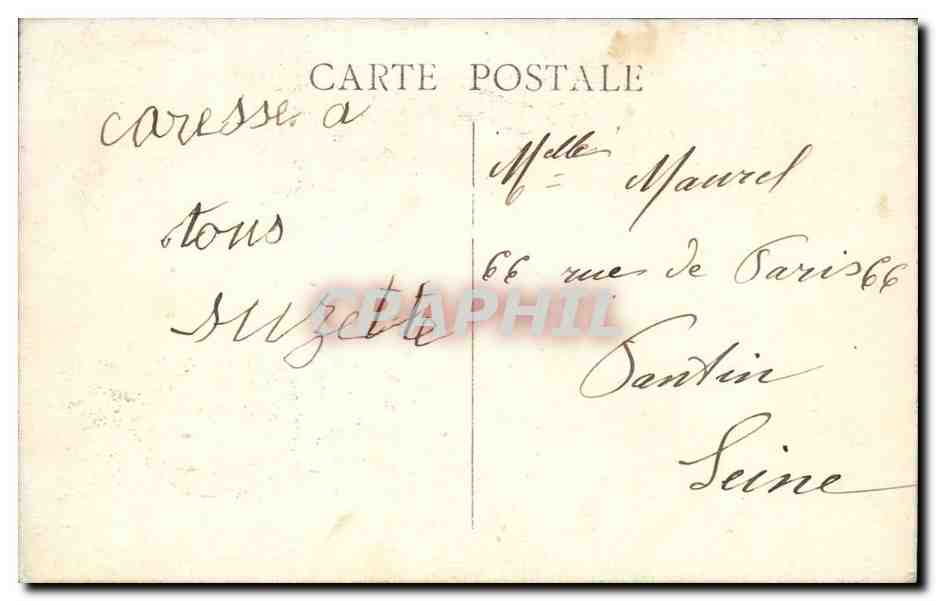 CARTE POSTALE
caresse a
tous
suzette
Mlle Maurel
66 rue de Paris 66
Pantin
Seine
CPAPHIL